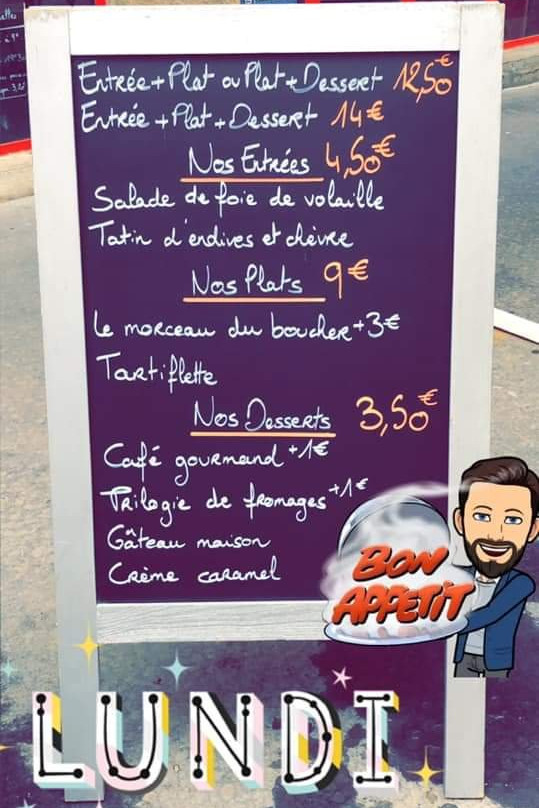 Entrée+Plat ou Plat+Dessert 12,50€
Entrée+Plat+Dessert 14€
Nos Entrées 4,50€
Salade de foie de volaille
Tatin d'endives et chèvre
Nos Plats 9€
Le morceau du boucher+3€
Tartiflette
Nos Desserts 3,50€
Café gourmand +1€
Trilogie de fromages +1€
Gâteau maison
Crème caramel
BON
APPETIT
LUNDI